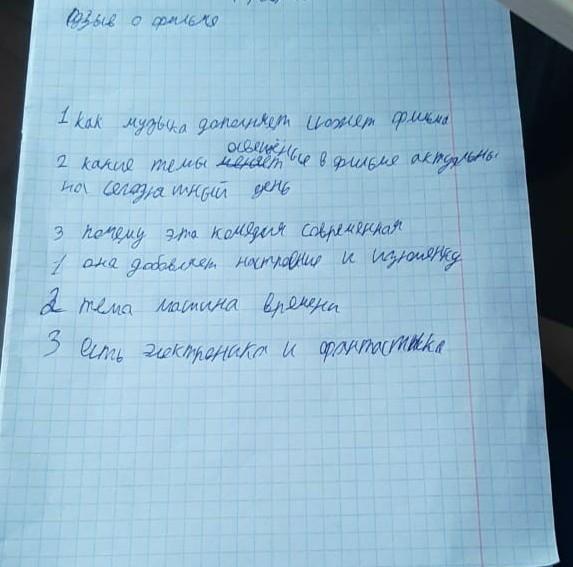 Отзыв о фильме
1 как музыка дополняет сюжет фильма
2 какие темы освещёные в фильме актуальны
на сегодняшный день
3 почему эта комедия современная
1 она добавляет настроение и изюминку
2 тема машина времени
3 есть электроника и фантастика